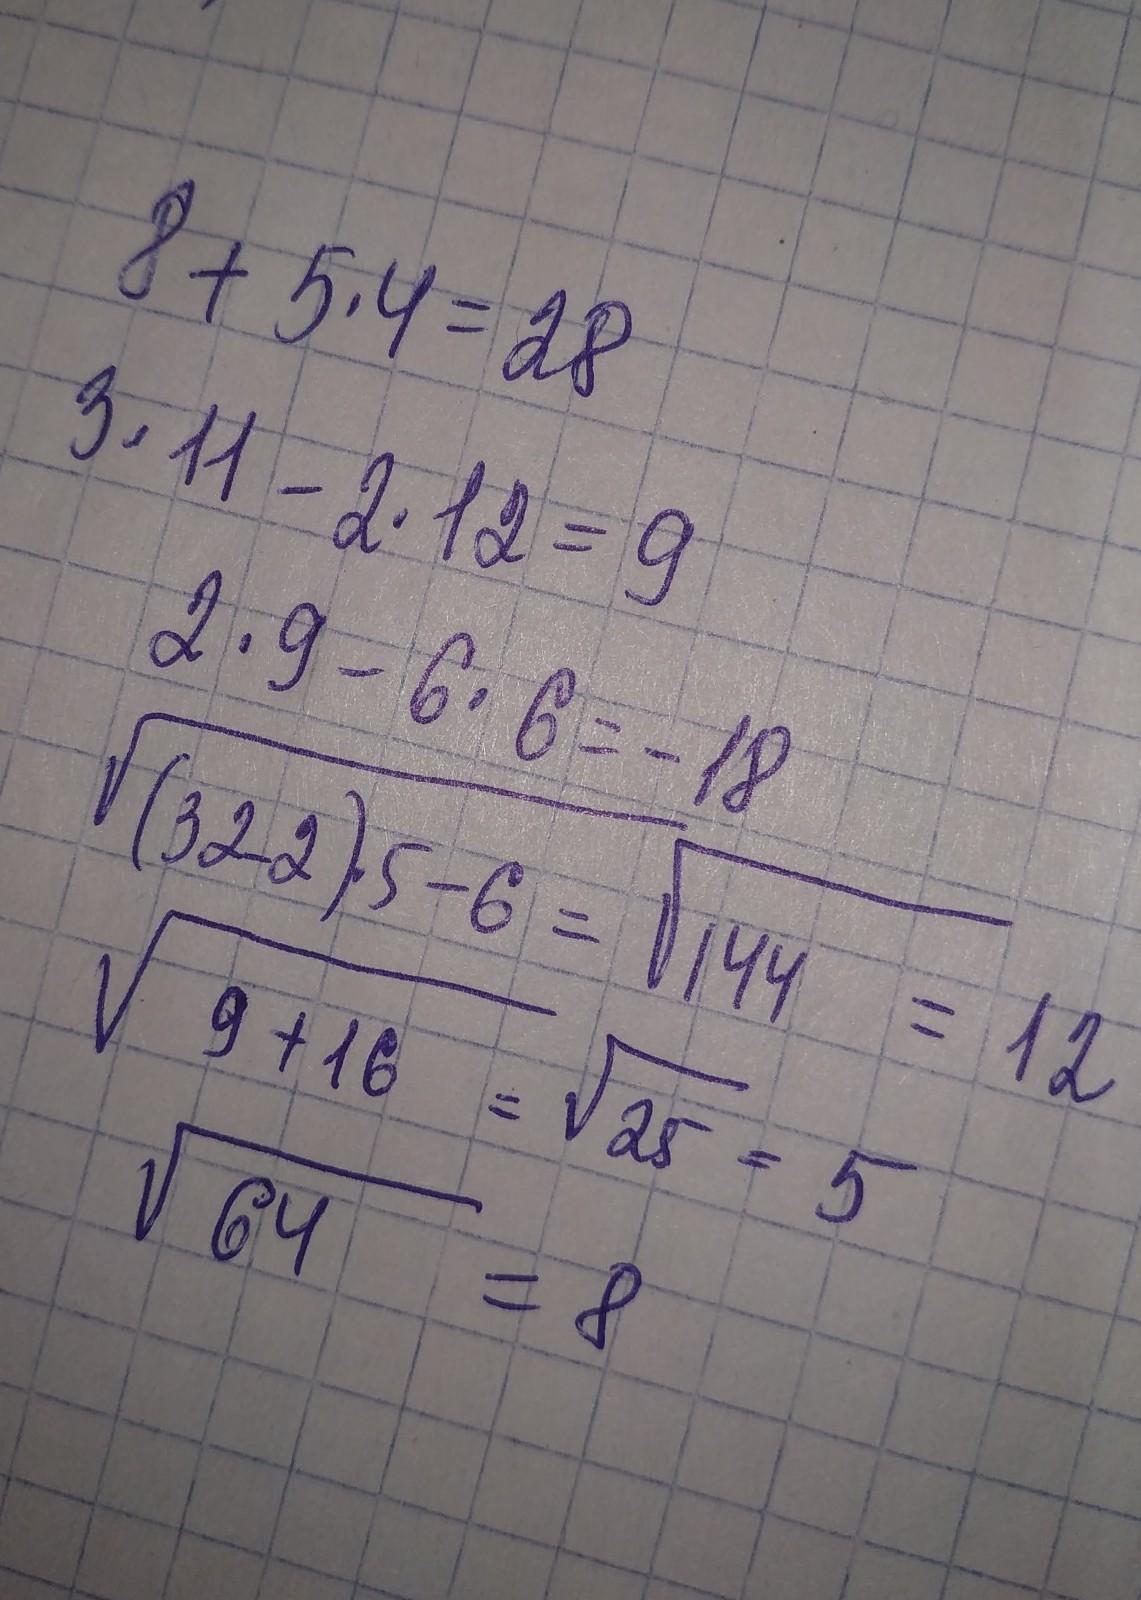 8 + 5·4 = 28
3·11 - 2·12 = 9
2·9 - 6·6 = -18
√(32-2)·5-6 = √144 = 12
√9+16 = √25 = 5
√64 = 8